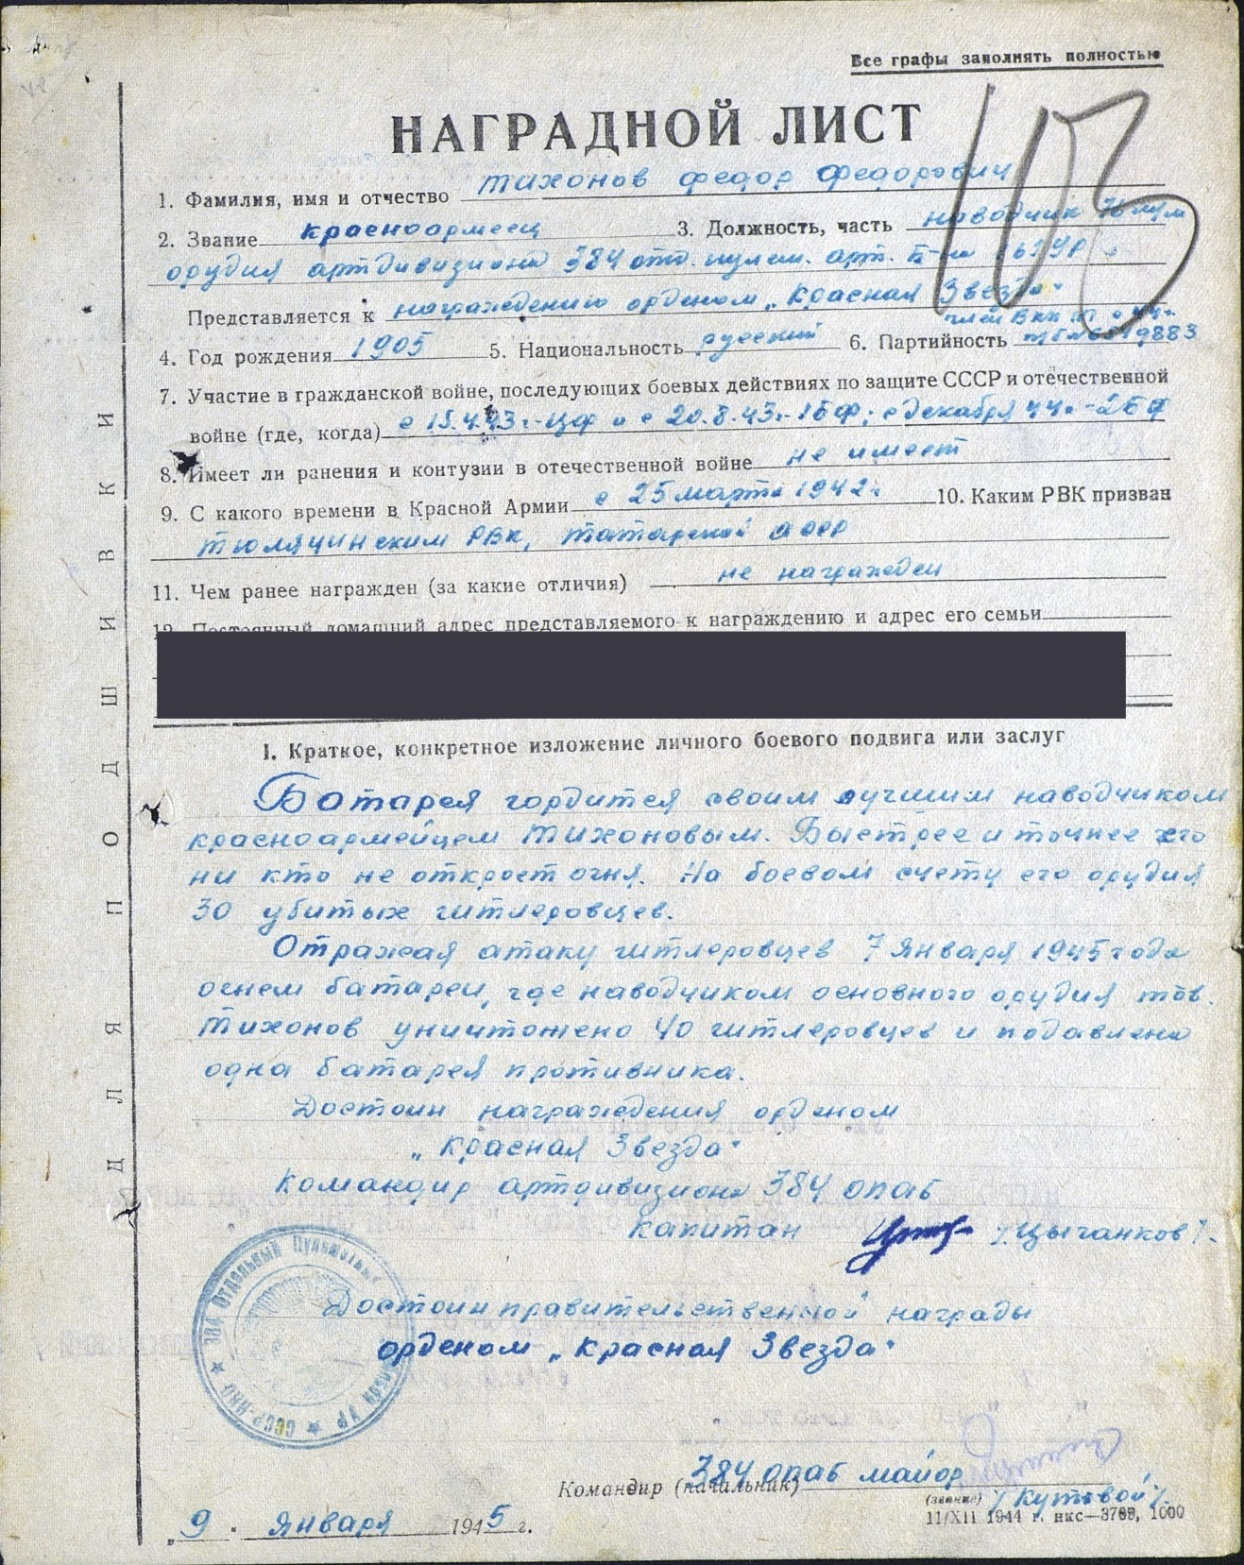 Все графы заполнять полностью
105
НАГРАДНОЙ ЛИСТ
1. Фамилия, имя и отчество Тихонов Федор Федорович
2. Звание красноармеец 3. Должность, часть наводчик 76 м/м
орудия артдивизиона 384 отд. пулем. арт. б-на УР
Представляется к награждению орденом „Красная Звезда"
член ВКП
4. Год рождения 1905 5. Национальность русский 6. Партийность 9883
7. Участие в гражданской войне, последующих боевых действиях по защите СССР и отечественной
войне (где, когда) с 15.4.43 г.-ЦФ и с 20.8.43г.-1БФ; с декабря 44г.-2БФ
8. Имеет ли ранения и контузии в отечественной войне не имеет
9. С какого времени в Красной Армии с 25 марта 1942 г. 10. Каким РВК призван
Тюлячинским РВК, Татарской АССР
11. Чем ранее награжден (за какие отличия) не награжден
12. Постоянный домашний адрес представляемого к награждению и адрес его семьи
I. Краткое, конкретное изложение личного боевого подвига или заслуг
Батарея гордится своим лучшим наводчиком
красноармейцем Тихоновым. Быстрее и точнее его
ни кто не откроет огня. На боевом счету его орудия
30 убитых гитлеровцев.
Отражая атаку гитлеровцев 7 января 1945 года
огнем батареи, где наводчиком основного орудия тов.
Тихонов уничтожено 40 гитлеровцев и подавлена
одна батарея противника.
Достоин награждения орденом
„Красная Звезда"
Командир артдивизиона 384 опаб
капитан /Цыганков/.
Достоин правительственной награды
орденом „Красная Звезда"
384 Отдельный Пульметный УР ★ СССР-НКО ★
Командир (начальник) 384 опаб майор
(звание) /Кутовой/
„9" января 1945 г.
11/XII 1944 г. нкс—3769, 1000
ДЛЯ ПОДШИВКИ